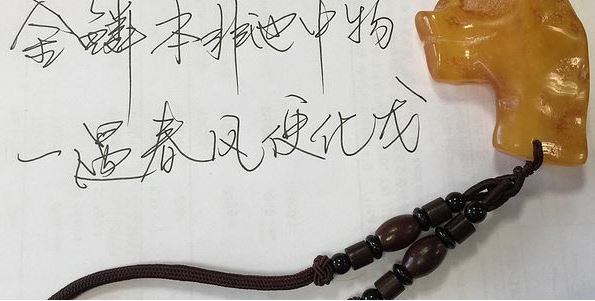 金鳞本非池中物
一遇春风便化龙